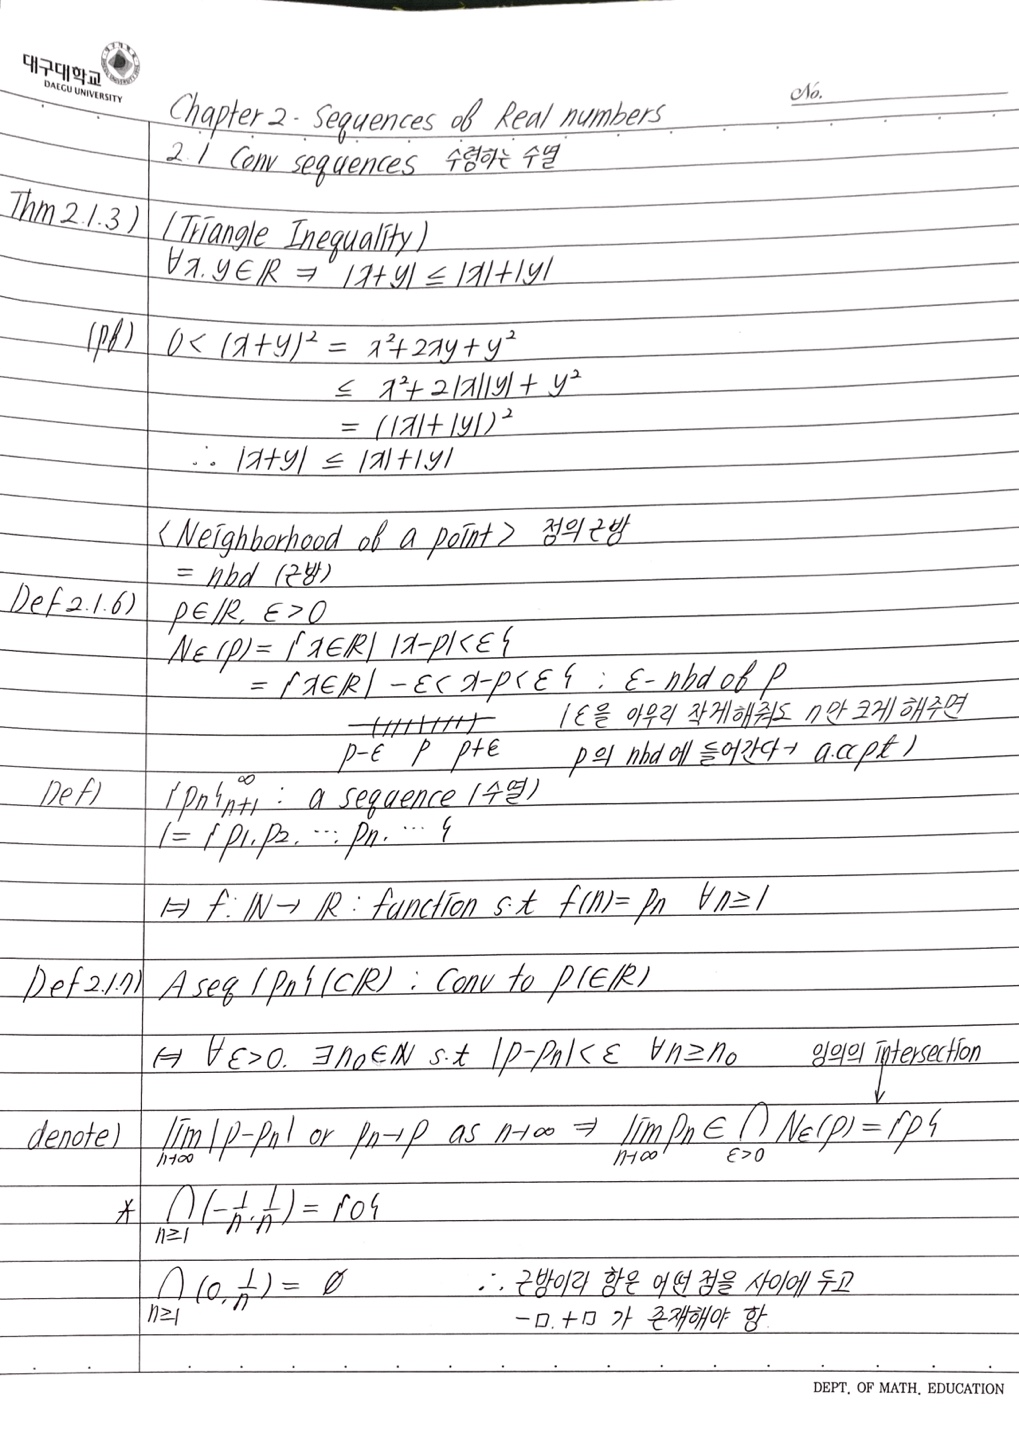 대구대학교
DAEGU UNIVERSITY
No.
Chapter 2. Sequences of Real numbers
2.1 Conv sequences 수렴하는 수열
Thm 2.1.3) (Triangle Inequality)
∀x, y∈ℝ ⇒ |x+y| ≤ |x|+|y|
(pf) 0< (x+y)² = x²+2xy+y²
≤ x²+2|x||y|+y²
= (|x|+|y|)²
∴ |x+y| ≤ |x|+|y|
<Neighborhood of a point> 점의 근방
= nbd (근방)
Def 2.1.6) p∈ℝ, ε>0
Nε(p) = {x∈ℝ| |x-p|<ε}
= {x∈ℝ| -ε< x-p<ε} : ε-nbd of p
(ε을 아무리 작게해줘도 n만 크게 해주면
p-ε p p+ε p의 nbd에 들어간다→ accpt)
Def) {pn}ₙ₊₁^∞ : a sequence (수열)
(= {p1, p2, ⋯, pn, ⋯}
⇔ f: ℕ→ℝ : function s.t f(n)= pn ∀n≥1
Def 2.1.7) A seq {pn}(⊂ℝ) : Conv to p(∈ℝ)
⇔ ∀ε>0, ∃n₀∈ℕ s.t |p-pn|<ε ∀n≥n₀ 임의의 intersection
denote) lim n→∞ |p-pn| or pn→p as n→∞ ⇒ lim n→∞ pn ∈ ⋂ ε>0 Nε(p) = {p}
* ⋂ n≥1 (-1/n, 1/n) = {0}
⋂ n≥1 (0, 1/n) = ∅ ∴ 근방이라 함은 어떤 점을 사이에 두고
-□, +□ 가 존재해야 함.
DEPT. OF MATH. EDUCATION